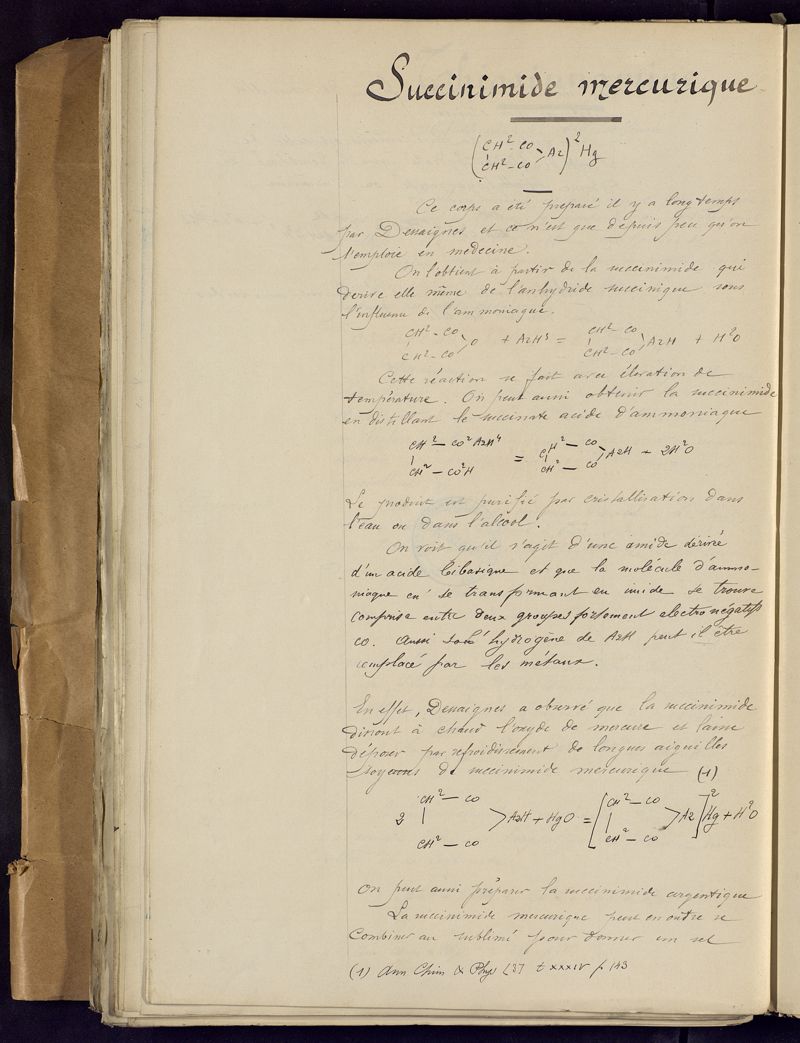 Succinimide mercurique
(CH² - CO
CH² - CO > Az)² Hg
Ce corps a été préparé il y a longtemps
par Dessaignes et ce n'est que depuis peu qu'on
l'emploie en medecine.
On l'obtient à partir de la succinimide qui
derive elle même de l'anhydride succinique sous
l'influence de l'ammoniaque.
CH² - CO CH² - CO
CH² - CO > O + AzH³ = CH² - CO > AzH + H²O
Cette réaction se fait avec élévation de
température. On peut aussi obtenir la succinimide
en distillant le succinate acide d'ammoniaque
CH² - CO²AzH⁴ CH² - CO
CH² - CO²H = CH² - CO > AzH + 2H²O
Le produit est purifié par cristallisation dans
l'eau ou dans l'alcool.
On voit qu'il s'agit d'une amide dérivée
d'un acide bibasique et que la molécule d'ammo-
niaque en se transformant en imide se trouve
comprise entre deux groupes fortement electronégatifs
CO. Aussi hydrogène de AzH peut il être
remplacé par les métaux.
En effet, Dessaignes a observé que la succinimide
dissout à chaud l'oxyde de mercure et laisse
déposer par refroidissement de longues aiguilles
soyeuses de succinimide mercurique (1)
CH² - CO [CH² - CO
2 | > AzH + HgO = | > Az]² Hg + H²O
CH² - CO CH² - CO
On peut aussi préparer la succinimide argentique
La succinimide mercurique peut en outre se
Combiner au sublimé pour donner un sel
(1) Ann Chim & Phys t XXXIV p 143